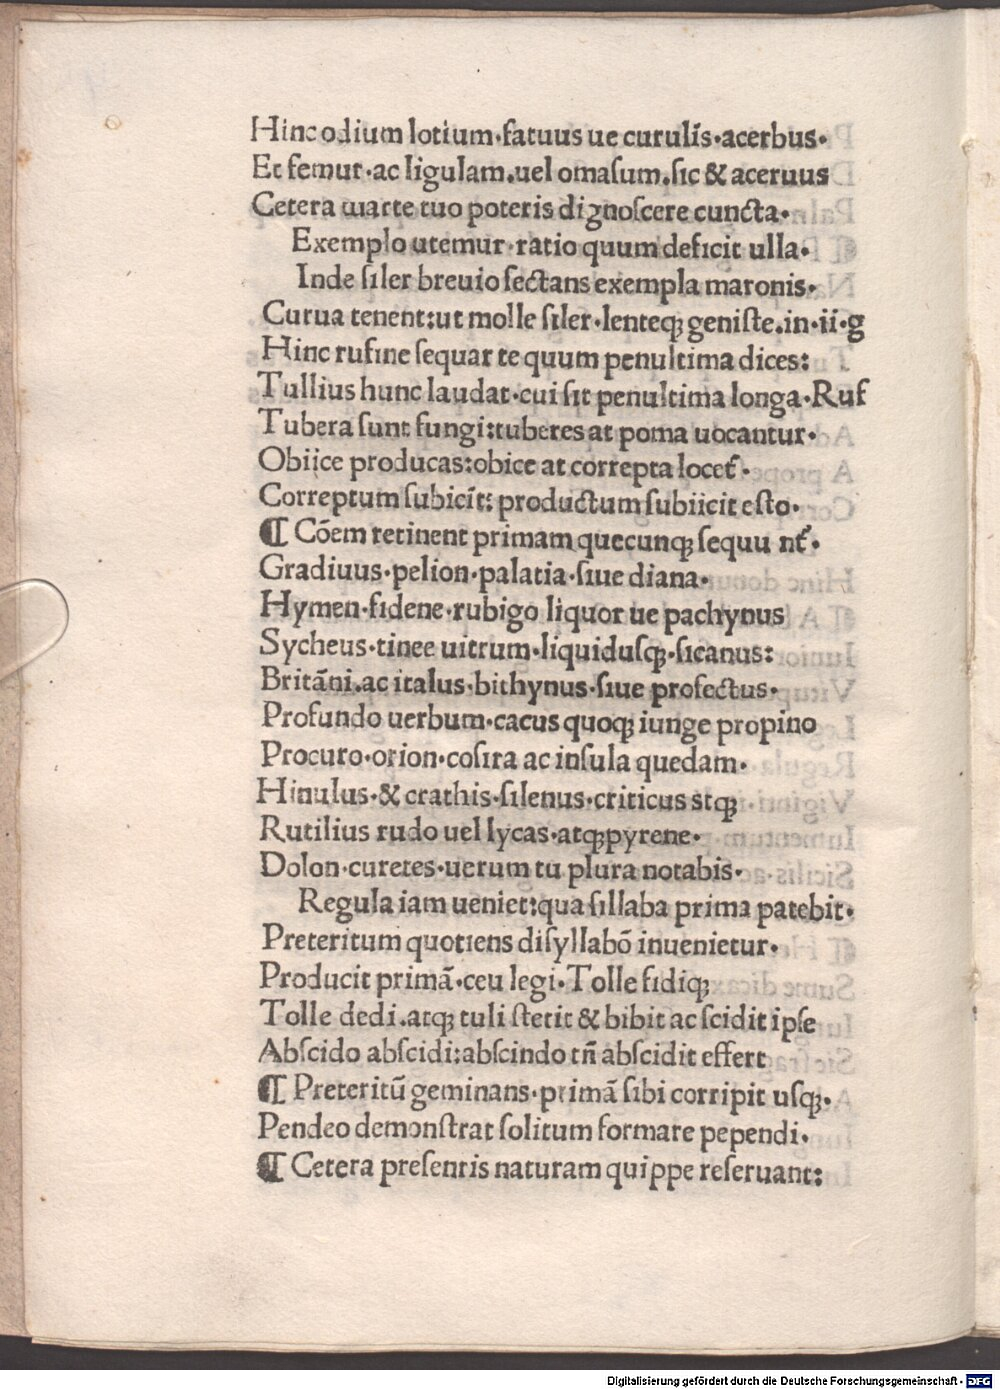 Hinc odium lotium·fatuus ue curulis̄·acerbus·
Et femur·ac ligulam.uel omasum.sic & aceruus
Cetera marte tuo poteris dignoscere cuncta·
Exemplo utemur·ratio quum deficit ulla·
Inde siler breuio sectans exempla maronis·
Curua tenent:ut molle siler·lenteqꝫ geniste.in·ii·g
Hinc rufine sequar te quum penultima dices:
Tullius hunc laudat·cui sit penultima longa·Ruf
Tubera sunt fungi:tuberes at poma uocantur·
Obiice producas:obice at correpta locet᷑·
Correptum subicit̄: productum subiicit esto·
¶ Cōem retinent primam quecunqꝫ sequu nt᷑·
Gradiuus·pelion·palatia·siue diana·
Hymen·fidene·rubigo liquor ue pachynus
Sycheus·tinee uitrum·liquidusqꝫ·sicanus:
Britāni.ac italus·bithynus·siue profectus·
Profundo uerbum·cacus quoqꝫ iunge propino
Procuro·orion·cosira ac insula quedam·
Hinulus·& crathis·silenus·criticus stqꝫ
Rutilius rudo uel lycas·atqꝫ pyrene·
Dolon·curetes·uerum tu plura notabis·
Regula iam ueniet:qua sillaba prima patebit·
Preteritum quotiens disyllabō inuenietur·
Producit primā·ceu legi·Tolle fidiqꝫ
Tolle dedi.atqꝫ tuli stetit & bibit ac scidit ipse
Abscido abscidi:abscindo tn̄ abscidit effert
¶ Preteritū geminans·primā sibi corripit usqꝫ·
Pendeo demonstrat solitum formare pependi·
¶ Cetera presentis naturam quippe reseruant:
Digitalisierung gefördert durch die Deutsche Forschungsgemeinschaft - DFG